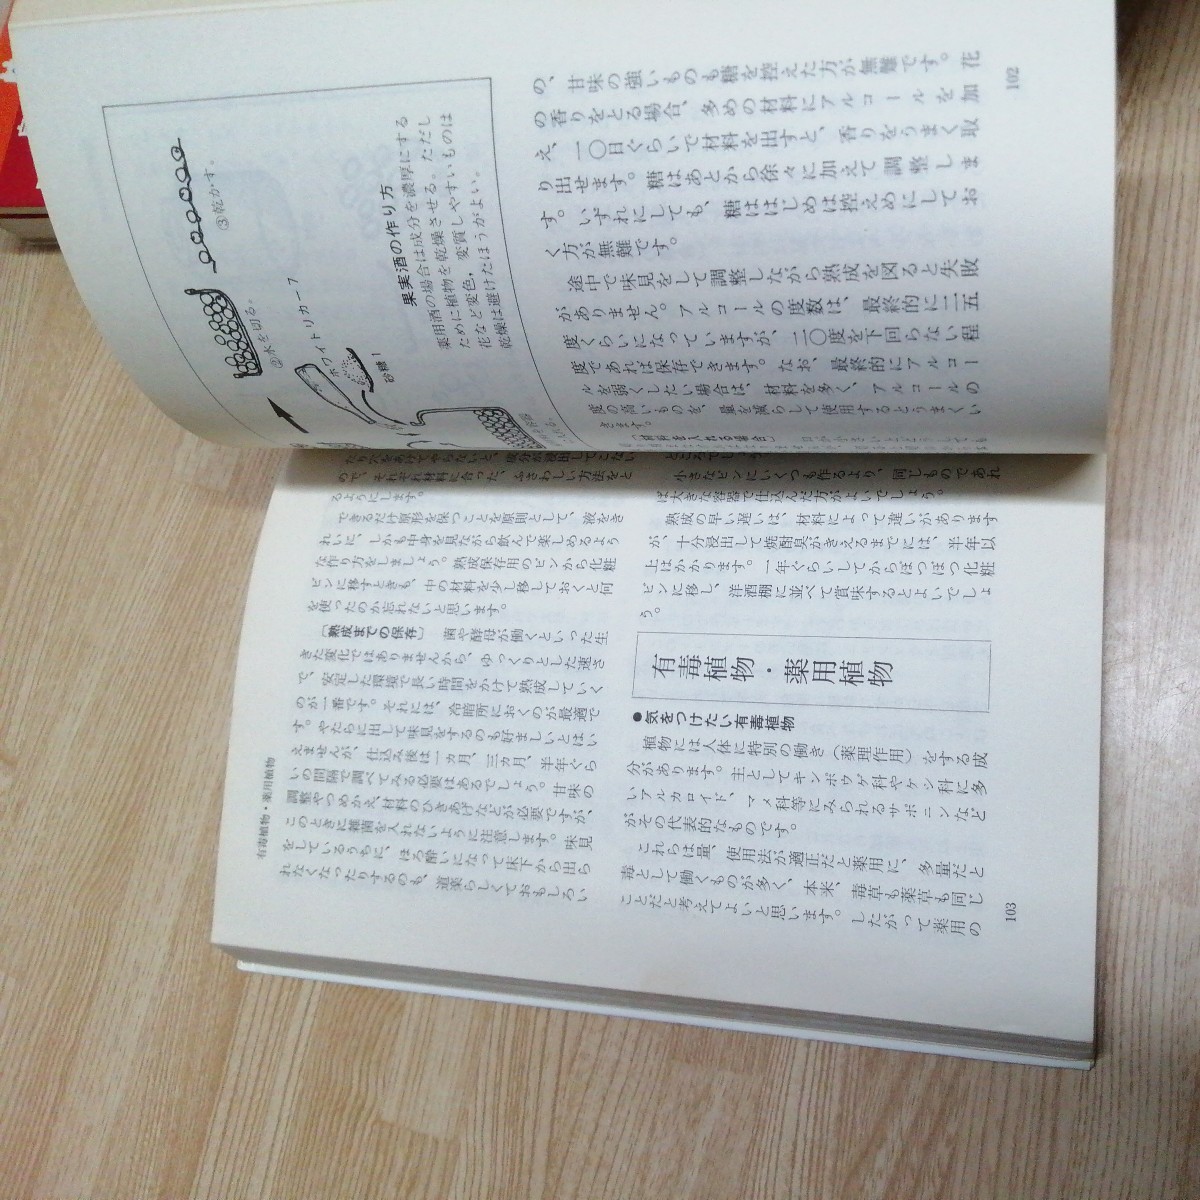 ③乾かす。
②水を切る。
ホワイトリカー？
砂糖1
果実酒の作り方
薬用酒の場合は成分を濃厚にする
ために植物を乾燥させる。ただし
花など変色，変質しやすいものは
乾燥は避けたほうがよい。
の、甘味の強いものも糖を控えた方が無難です。花
の香りをとる場合、多めの材料にアルコールを加
え、一〇日ぐらいで材料を出すと、香りをうまく取
り出せます。糖はあとから徐々に加えて調整しま
す。いずれにしても、糖ははじめは控えめにしてお
く方が無難です。
途中で味見をして調整しながら熟成を図ると失敗
がありません。アルコールの度数は、最終的に二五
度くらいになっていますが、二〇度を下回らない程
度であれば保存できます。なお、最終的にアルコー
ルを弱くしたい場合は、材料を多く、アルコールの
度の高いものを、量を減らして使用するとうまくい
きます。
〔材料を入れる場合〕
102
たり穴をあけてやらないと、成分が浸出してこない
ので、それぞれ材料に合った、ふさわしい方法をと
るようにします。
できるだけ原形を保つことを原則として、液をき
れいに、しかも中身を見ながら飲んで楽しめるよう
な作り方をしましょう。熟成保存用のビンから化粧
ビンに移すときも、中の材料を少し移しておくと何
を使ったのか忘れないと思います。
〔熟成までの保存〕 菌や酵母が働くといった生
きた変化ではありませんから、ゆっくりとした速さ
で、安定した環境で長い時間をかけて熟成していく
のが一番です。それには、冷暗所におくのが最適で
す。やたらに出して味見をするのも好ましいとはい
えませんが、仕込み後は一カ月、三カ月、半年ぐら
いの間隔で調べてみる必要はあるでしょう。甘味の
調整やつめかえ、材料のひきあげなどが必要ですが、
このときに雑菌を入れないように注意します。味見
をしているうちに、ほろ酔いになって床下から出ら
れなくなったりするのも、道楽らしくておもしろい
ところでしょう。
小さなビンにいくつも作るより、同じものであれ
ば大きな容器で仕込んだ方がよいでしょう。
熟成の早い遅いは、材料によって違いがあります
が、十分浸出して焼酎臭がきえるまでには、半年以
上はかかります。一年ぐらいしてからぼつぼつ化粧
ビンに移し、洋酒棚に並べて賞味するとよいでしょ
う。
有毒植物・薬用植物
●気をつけたい有毒植物
植物には人体に特別の働き（薬理作用）をする成
分があります。主としてキンポウゲ科やケシ科に多
いアルカロイド、マメ科等にみられるサポニンなど
がその代表的なものです。
これらは量、使用法が適正だと薬用に、多量だと
毒として働くものが多く、本来、毒草も薬草も同じ
ことだと考えてよいと思います。したがって薬用の
有毒植物・薬用植物
103